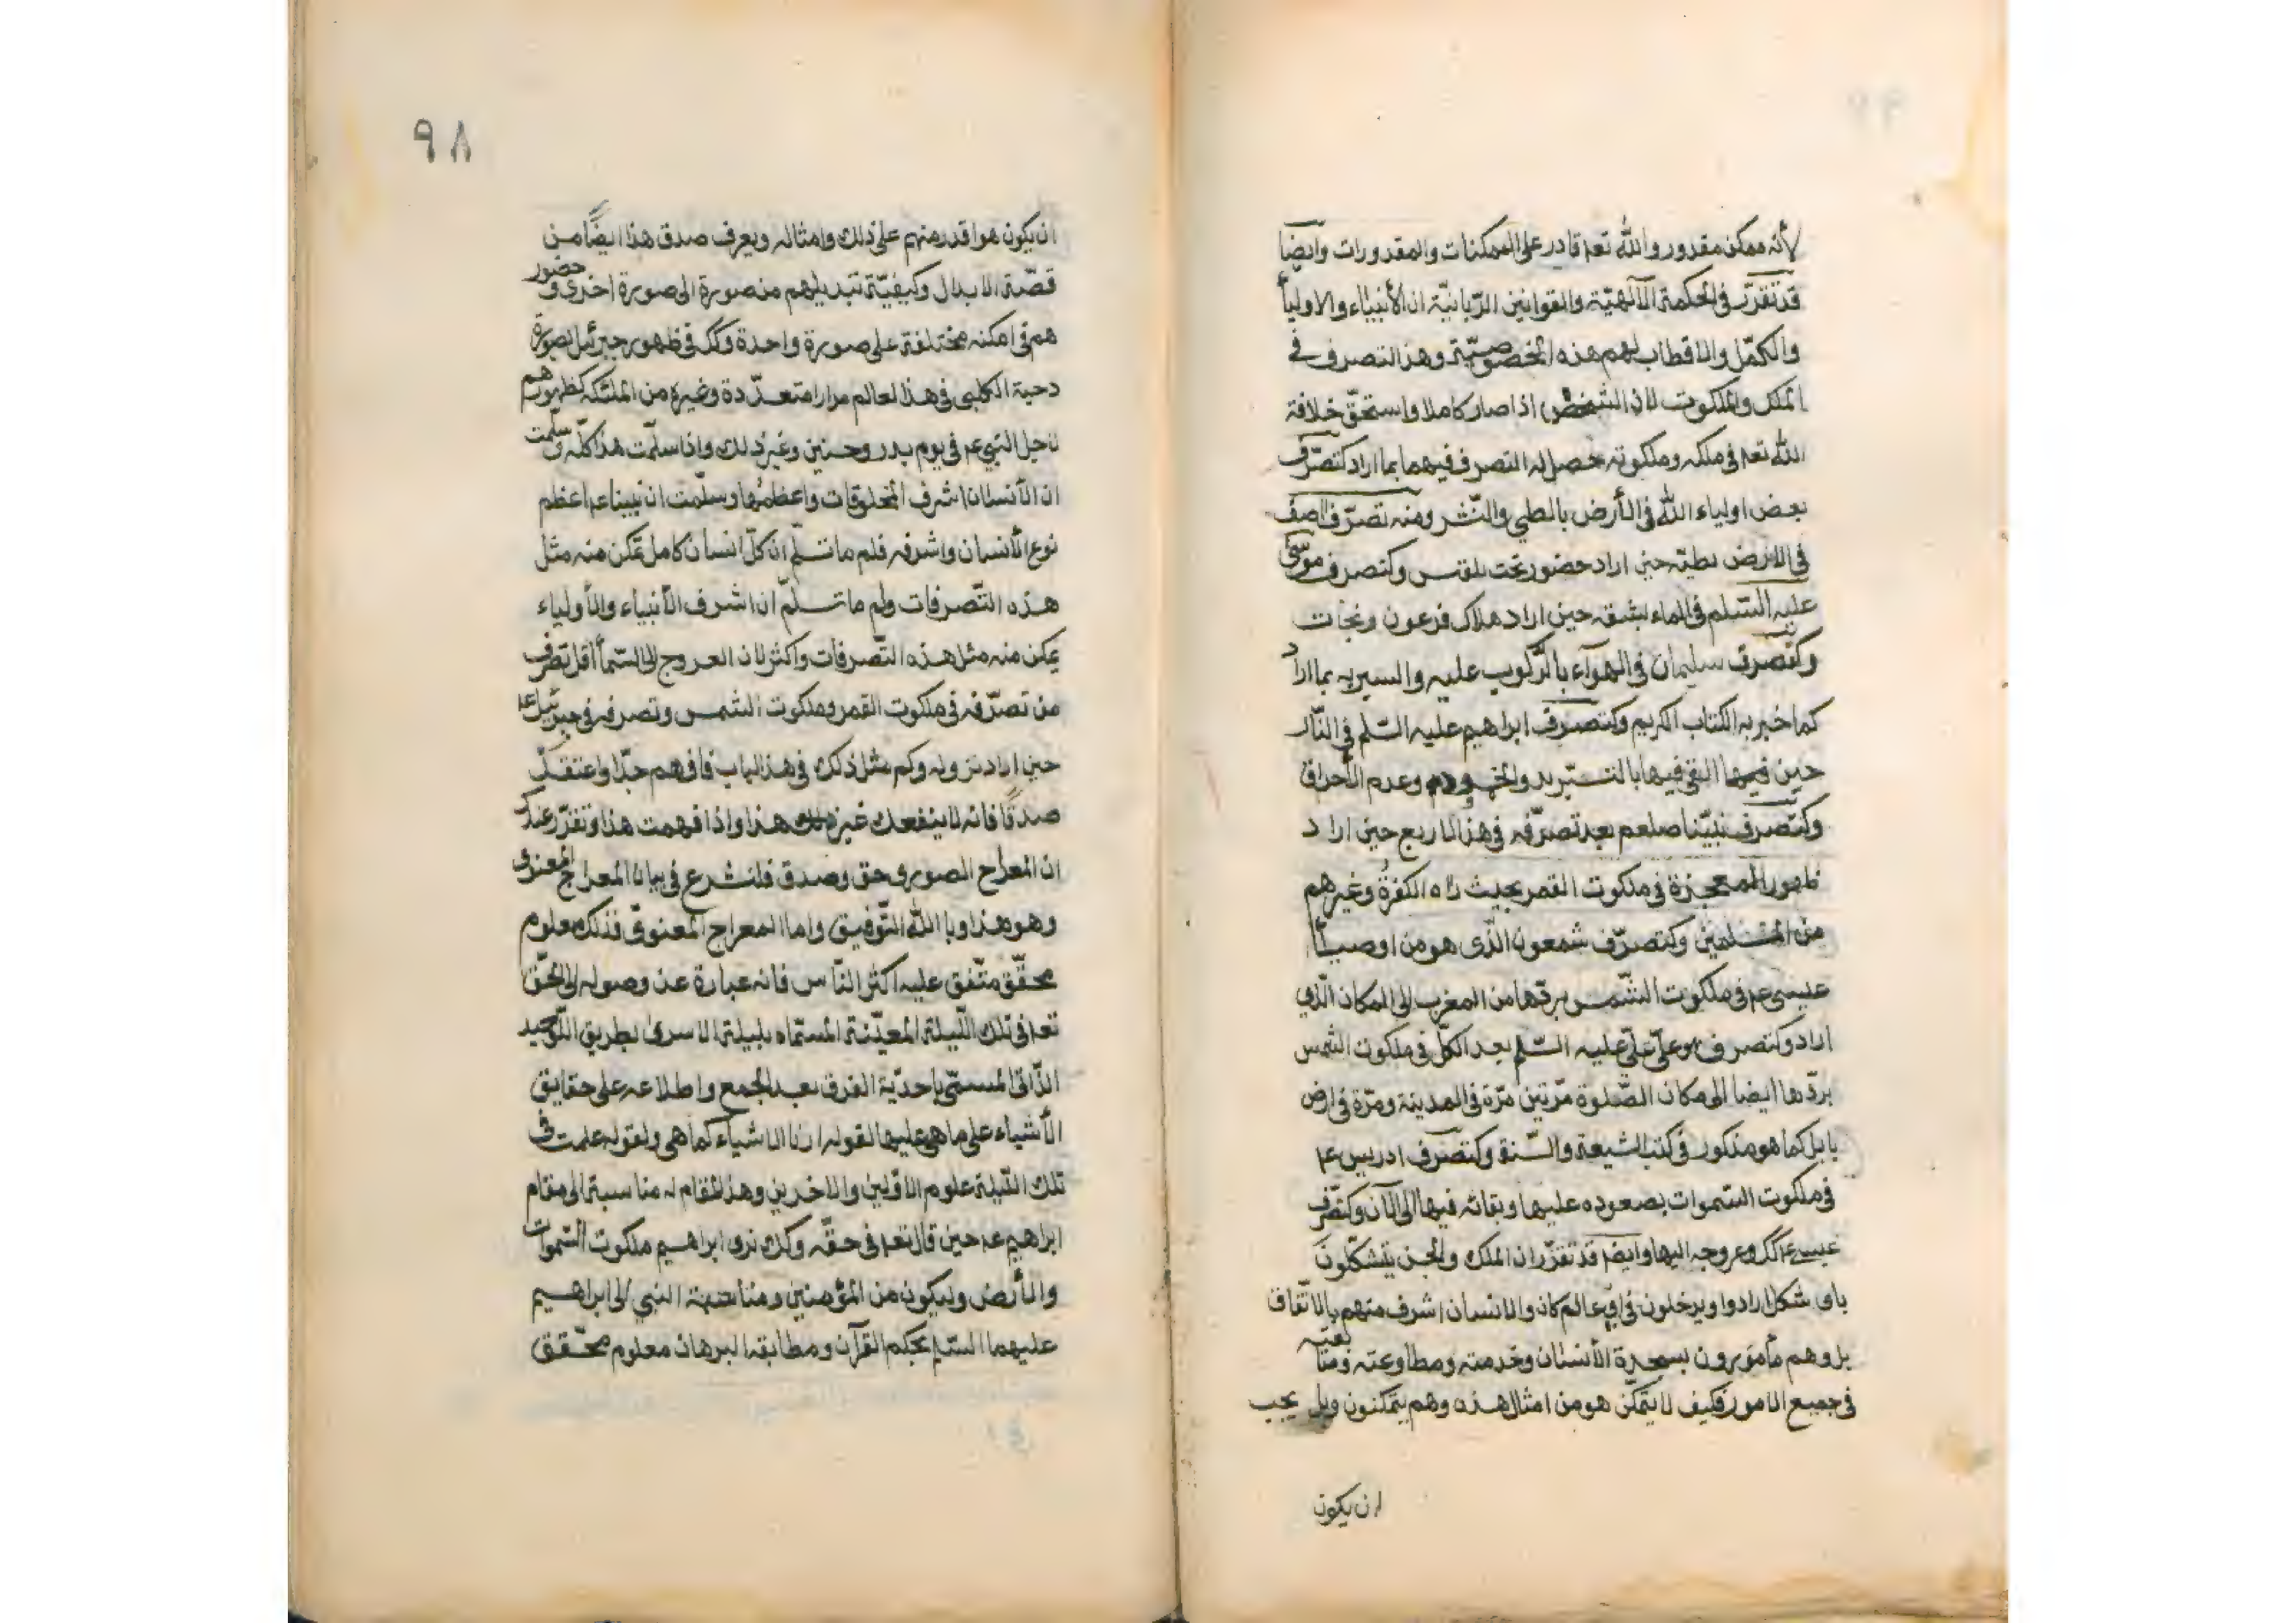 لأنه ممكن مقدور والله تعم قادر على الممكنات والمقدورات وايضا
قد تقرر في الحكمة الآلهية والقوانين الربانية ان الأنبياء والاوليأ
والكمّل والاقطاب لهم هذه الخصوصيّة وهذا التصرف في
الملك والملكوت لان الشخص اذا صار كاملا واستحقّ خلافة
الله تعم في ملكه وملكوته حصل له التصرف فيهما بما اراد كتصرّف
بعض اولياء الله في الأرض بالطي والنّشر ومنه تصرّف اصف
في الارض بطيّه حين اراد حضور تخت بلقيس وكتصرف موسى
عليه السّلم في الماء بشقه حين اراد هلاك فرعون ونجات
وكتصرف سليمان في الهوآء بالرّكوب عليه والسير به بما اراد
كما اخبر به الكتاب الكريم وكتصرف ابراهيم عليه السّلم في النّار
حين فيها القي فيها بالتبريد والخمود وعدم الأحراق
وكتصرف نبيّنا صلعم بعد تصرّفه في هذا الاربع حين اراد
ظهور المعجزة في ملكوت القمر بحيث راه الكفرة وغيرهم
من المسلمين وكتصرّف شمعون الّذى هو من اوصيأ
عيسى عم في ملكوت الشّمس بردّها من المغرب الى المكان الّذي
اراد وكتصرف علي عليه السّلم بعد الكلّ في ملكوت الشمس
بردّها ايضا الى مكان الصّلوة مرّتين مرّة في المدينة ومرّة في ارض
بابل كما هو مذكور في كتب الشيعة والسّنة وكتصرف ادريس عم
في ملكوت السّموات بصعوده عليها وبقائه فيها الى الآن وكتصرّف
عيسى عم كك وعروجه اليها وايضا قد تقرّر ان الملك والجن يتشكّلون
باى شكل ارادوا ويدخلون في اىّ عالم كان والانسان اشرف منهم بالاتّفاق
بل وهم مأمورون بسجدة الأنسان وخدمته ومطاوعته ومتابعته
في جميع الامور فكيف لا يتمكّن هو من امثال هذه وهم يتمكنون وبل يجب
ان يكون
٩٨
ان يكون هو اقدر منهم على ذلك وامثاله ويعرف صدق هذا ايضًا من
قصّة الابدال وكيفيّة تبديلهم من صورة الى صورة اخرى وحضور
هم في امكنه مختلفة على صورة واحدة وكك في ظهور جبرئيل بصورة
دحية الكلبى في هذا العالم مرارا متعدّدة وغيره من الملئكه كظهورهم
لاجل النبي عم في يوم بدر وحنين وغير ذلك واذا سلّمت هذا كلّه وسلّمت
ان الأنسان اشرف المخلوقات واعظمها وسلّمت ان نبينا عم اعظم
نوع الأنسان واشرفه فلم ما تسلّم ان كلّ انسان كامل تمكن منه مثل
هذه التّصرفات ولم ما تسلّم ان اشرف الأنبياء والأولياء
يمكن منه مثل هذه التّصرفات واكثر لان العروج الى السّمأ اقل تصرف
من تصرّفه في ملكوت القمر وملكوت الشمس وتصرفه في جبرئيل عم
حين اراد نزوله وكم مثل ذلك في هذا الباب فافهم جدّا واعتقد
صدقًا فانه لا ينفعك غير هذا واذا فهمت هذا وتقرّر عندك
ان المعراج الصوري حق وصدق فلنشرع في بيان المعراج المعنوى
وهو هذا وبالله التّوفيق واما المعراج المعنوي فذلك معلوم
محقّق متّفق عليه اكثر النّاس فانه عبارة عن وصوله الى الحقّ
تعم في تلك اللّيلة المعيّنة المسمّاه بليلة الاسرى بطريق التّوحيد
الذّاتى المسمّى باحديّة الفرق بعد الجمع واطلاعه على حقايق
الأشياء على ما هي عليها لقوله ارنا الاشياء كما هى ولقوله علمت في
تلك اللّيلة علوم الاوّلين والاخرين وهذا المقام له مناسبة الى مقام
ابراهيم عم حين قال تعم في حقّه وكك نرى ابراهيم ملكوت السّموات
والأرض وليكون من المؤمنين ومناسبة النبي الى ابراهيم
عليهما السّلم بحكم القرآن ومطابقة البرهان معلوم محقّق